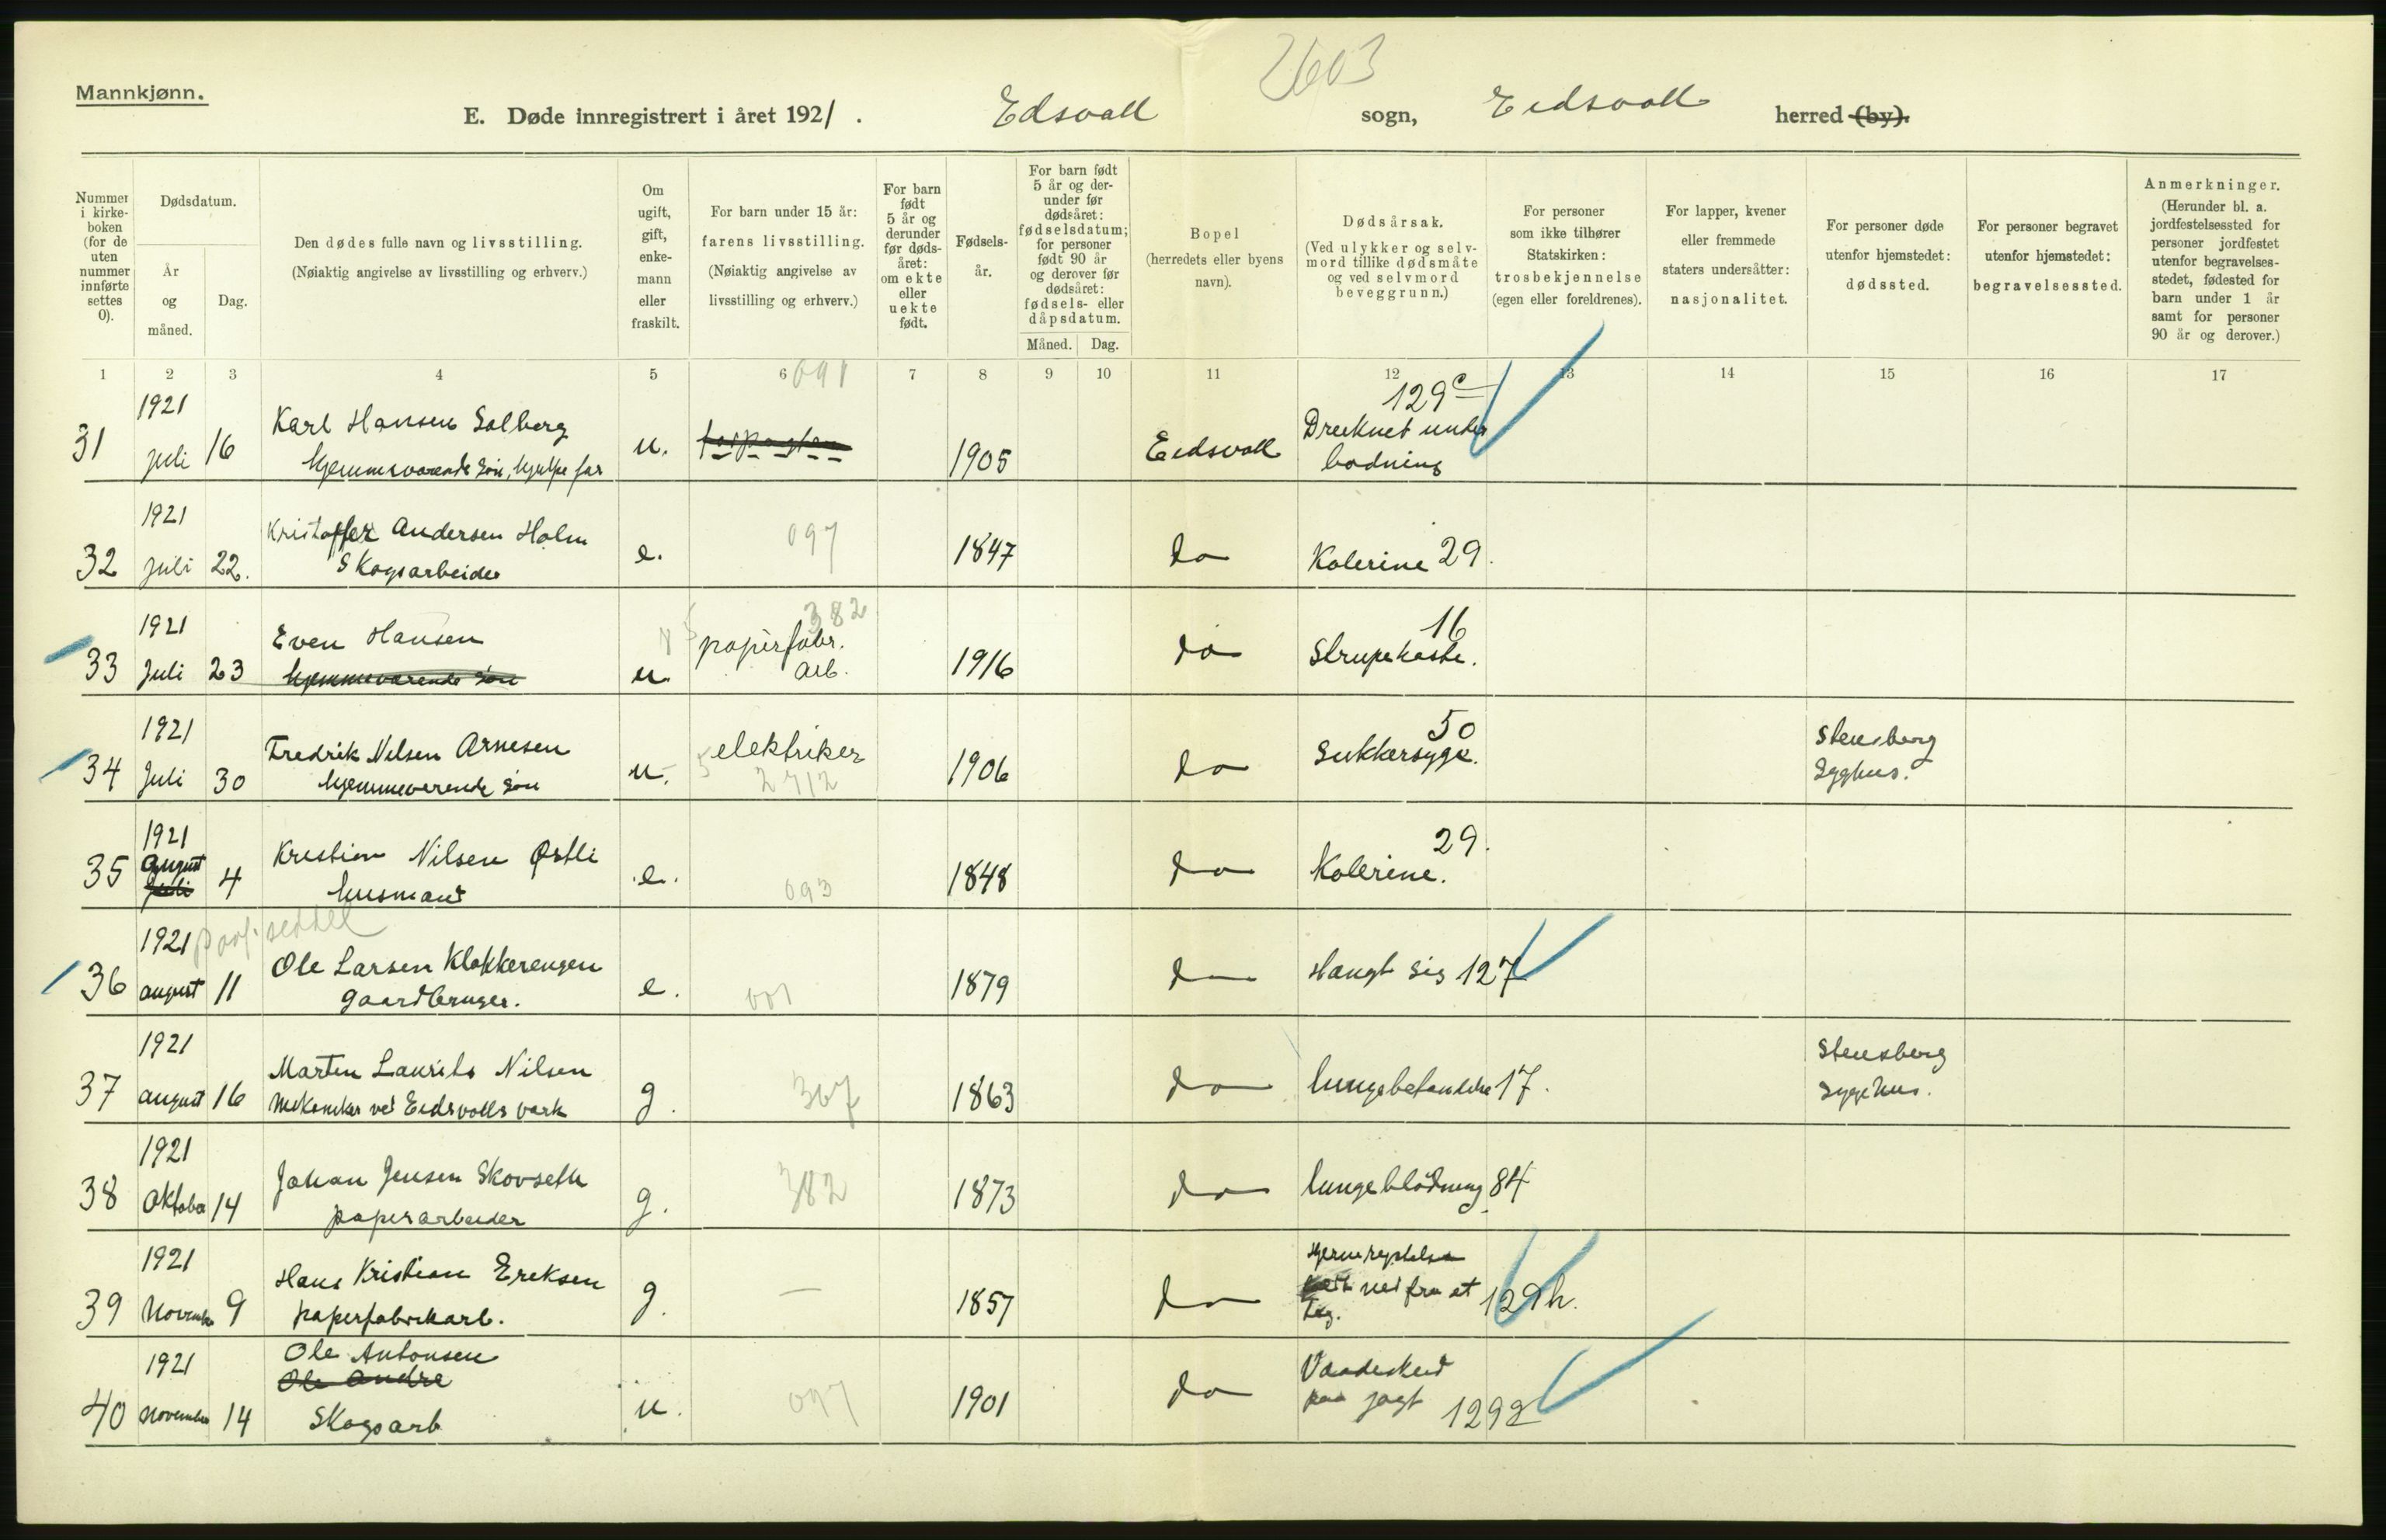 2603
Mannkjønn.
E. Døde innregistrert i året 1921.
Edsvall sogn, Eidsvoll herred (by).
Nummer i kirke-boken (for de uten nummer innførte settes 0).
Dødsdatum.
År og måned.
Dag.
Den dødes fulle navn og livsstilling.
(Nøiaktig angivelse av livsstilling og erhverv.)
Om ugift, gift, enke-mann eller fraskilt.
For barn under 15 år: farens livsstilling. (Nøiaktig angivelse av livsstilling og erhverv.)
For barn født 5 år og derunder før døds-året: om ekte eller uekte født.
Fødsels-år.
For barn født 5 år og der-under før dødsåret: fødselsdatum; for personer født 90 år og derover før dødsåret: fødsels- eller dåpsdatum.
Måned. Dag.
Bopel (herredets eller byens navn).
Dødsårsak. (Ved ulykker og selv-mord tillike dødsmåte og ved selvmord beveggrunn.)
For personer som ikke tilhører Statskirken: trosbekjennelse (egen eller foreldrenes).
For lapper, kvener eller fremmede staters undersåtter: nasjonalitet.
For personer døde utenfor hjemstedet: dødssted.
For personer begravet utenfor hjemstedet: begravelsessted.
Anmerkninger. (Herunder bl. a. jordfestelsessted for personer jordfestet utenfor begravelses-stedet, fødested for barn under 1 år samt for personer 90 år og derover.)
1 2 3 4 5 6 7 8 9 10 11 12 13 14 15 16 17
091
31 1921 juli 16 Karl Hansen Solberg u. 1905 Eidsvoll 129c Drucknet under
hjemmeværende søn, hjelpe far badning
32 1921 juli 22. Kristoffer Andersen Holm e. 097 1847 do Kolerine 29.
Skogsarbeider
33 1921 Juli 23 Even Hansen u. papirfabr. 382 1916 do Strupehoste. 16
hjemmeværende søn arb.
34 1921 Juli 30 Fredrik Nilsen Arnesen u. elektriker 1906 do Sukkersyge. 50 Stensberg
hjemmeværende søn 2712 Syghus.
35 1921 august Juli 4 Kristian Nilsen Østli e. 093 1848 do Kolerine. 29.
husmand
seddel
36 1921 august 11 Ole Larsen Klokkerengen e. 001 1879 do Hængt sig 127
gaardbruger.
37 1921 august 16 Marten Laurits Nilsen g. 367 1863 do lungebetændelse 17. Stensberg
mekaniker ved Eidsvolls værk sygehus.
38 1921 Oktober 14 Johan Jensen Skovseth g. 382 1873 do lungeblødning 84
papirarbeider
39 1921 November 9 Hans Kristian Ereksen g. — 1857 do Hjernerystelse
papirfabrikarb. ned fra et 129h.
tag.
40 1921 november 14 Ole Antonsen u. 097 1901 do Vaadeskud
Ole Andre
Skogsarb paa jagt 1292